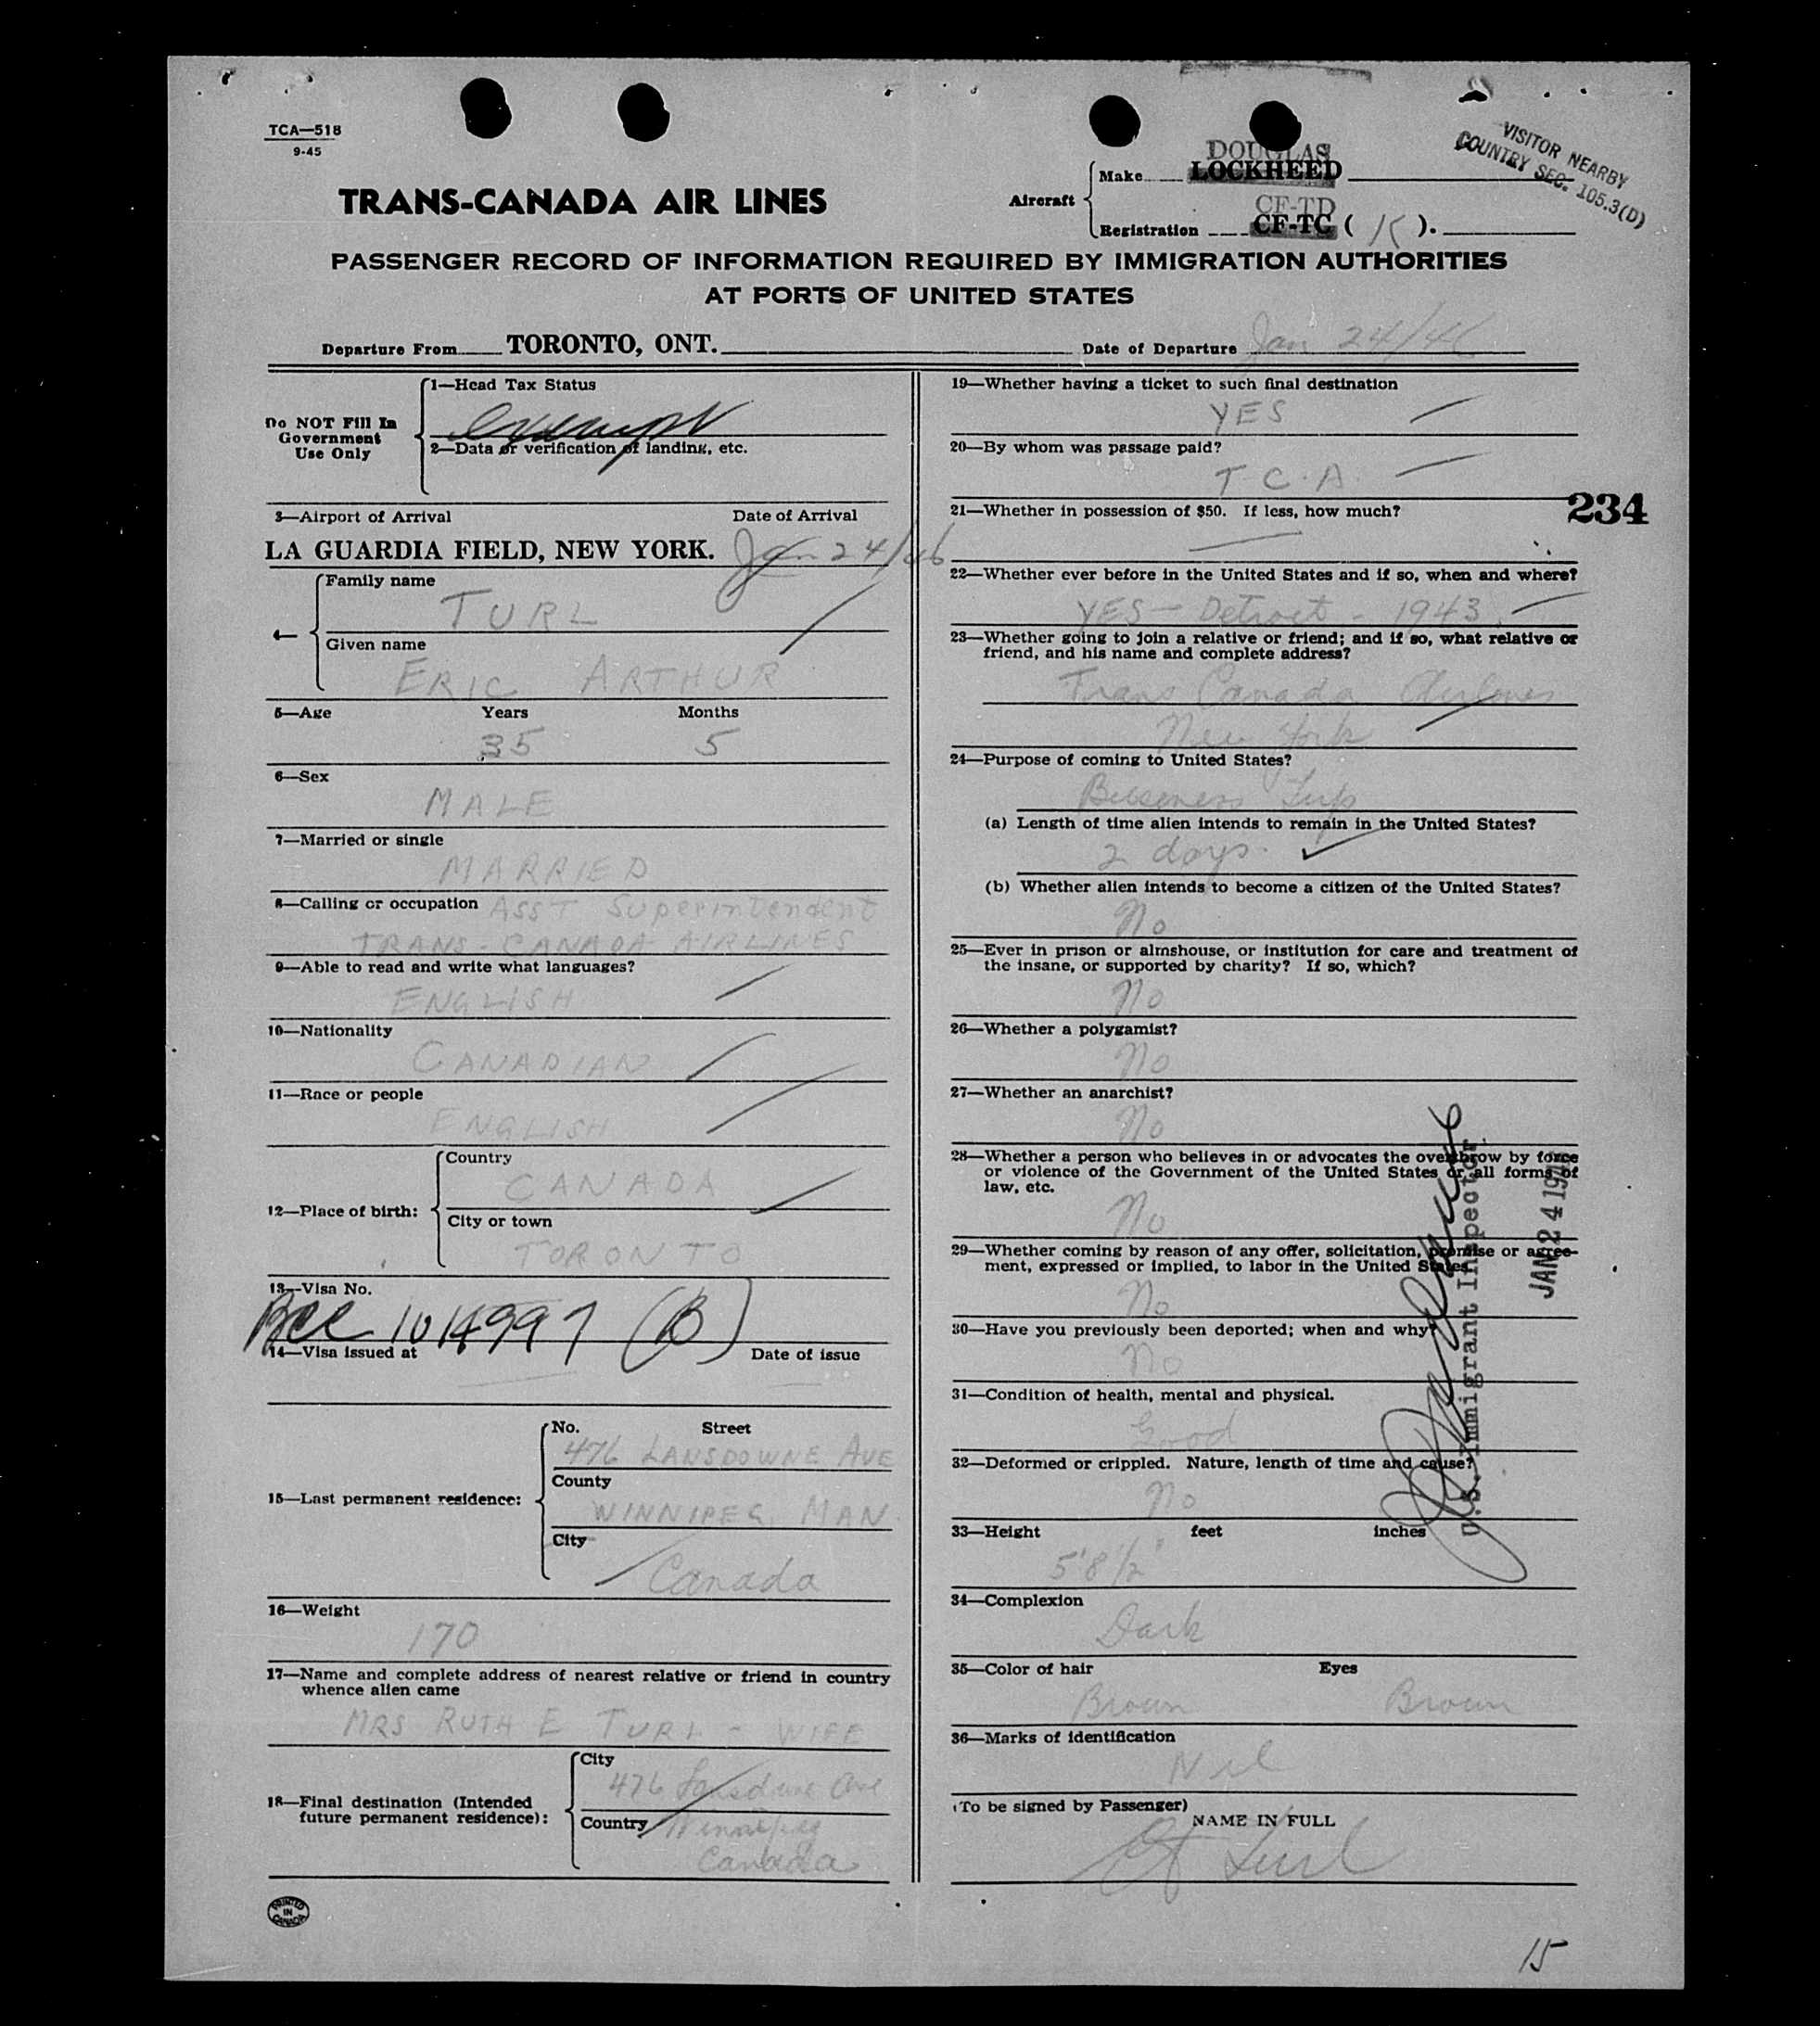 TCA—518
9-45
VISITOR NEARBY
COUNTRY SEC. 105.3(D)
TRANS-CANADA AIR LINES
Aircraft
DOUGLAS
Make LOCKHEED
CF-TD
Registration CF-TC ( K ).
PASSENGER RECORD OF INFORMATION REQUIRED BY IMMIGRATION AUTHORITIES
AT PORTS OF UNITED STATES
Departure From TORONTO, ONT.
Date of Departure Jan 24/46
Do NOT Fill In
Government
Use Only
1—Head Tax Status
exempt
2—Data or verification of landing, etc.
3—Airport of Arrival Date of Arrival
LA GUARDIA FIELD, NEW YORK. Jan 24/46
4—
Family name
TURL
Given name
ERIC ARTHUR
5—Age Years Months
35 5
6—Sex
MALE
7—Married or single
MARRIED
8—Calling or occupation ASST Superintendent
TRANS-CANADA AIRLINES
9—Able to read and write what languages?
ENGLISH
10—Nationality
CANADIAN
11—Race or people
ENGLISH
12—Place of birth:
Country
CANADA
City or town
TORONTO
13—Visa No.
BCC 1014997 (B)
14—Visa issued at Date of issue
15—Last permanent residence:
No. Street
476 LANSDOWNE AVE
County
WINNIPEG, MAN.
City
Canada
16—Weight
170
17—Name and complete address of nearest relative or friend in country
whence alien came
MRS RUTH E TURL - WIFE
18—Final destination (Intended
future permanent residence):
City
476 Lansdowne Ave
Country Winnipeg
Canada
PRINTED
IN
CANADA
19—Whether having a ticket to such final destination
YES
20—By whom was passage paid?
T.C.A.
234
21—Whether in possession of $50. If less, how much?
22—Whether ever before in the United States and if so, when and where?
YES - Detroit - 1943.
23—Whether going to join a relative or friend; and if so, what relative or
friend, and his name and complete address?
Trans Canada Airlines
New York
24—Purpose of coming to United States?
Business Trip
(a) Length of time alien intends to remain in the United States?
2 days.
(b) Whether alien intends to become a citizen of the United States?
No
25—Ever in prison or almshouse, or institution for care and treatment of
the insane, or supported by charity? If so, which?
No
26—Whether a polygamist?
No
27—Whether an anarchist?
No
28—Whether a person who believes in or advocates the overthrow by force
or violence of the Government of the United States or all forms of
law, etc.
No
29—Whether coming by reason of any offer, solicitation, promise or agree-
ment, expressed or implied, to labor in the United States
No
30—Have you previously been deported; when and why?
No
31—Condition of health, mental and physical.
Good
32—Deformed or crippled. Nature, length of time and cause?
No
33—Height feet inches
5'8 1/2"
34—Complexion
Dark
35—Color of hair Eyes
Brown Brown
36—Marks of identification
Nil
(To be signed by Passenger)
NAME IN FULL
EA Turl
U.S. Immigrant Inspector
JAN 24 1946
15